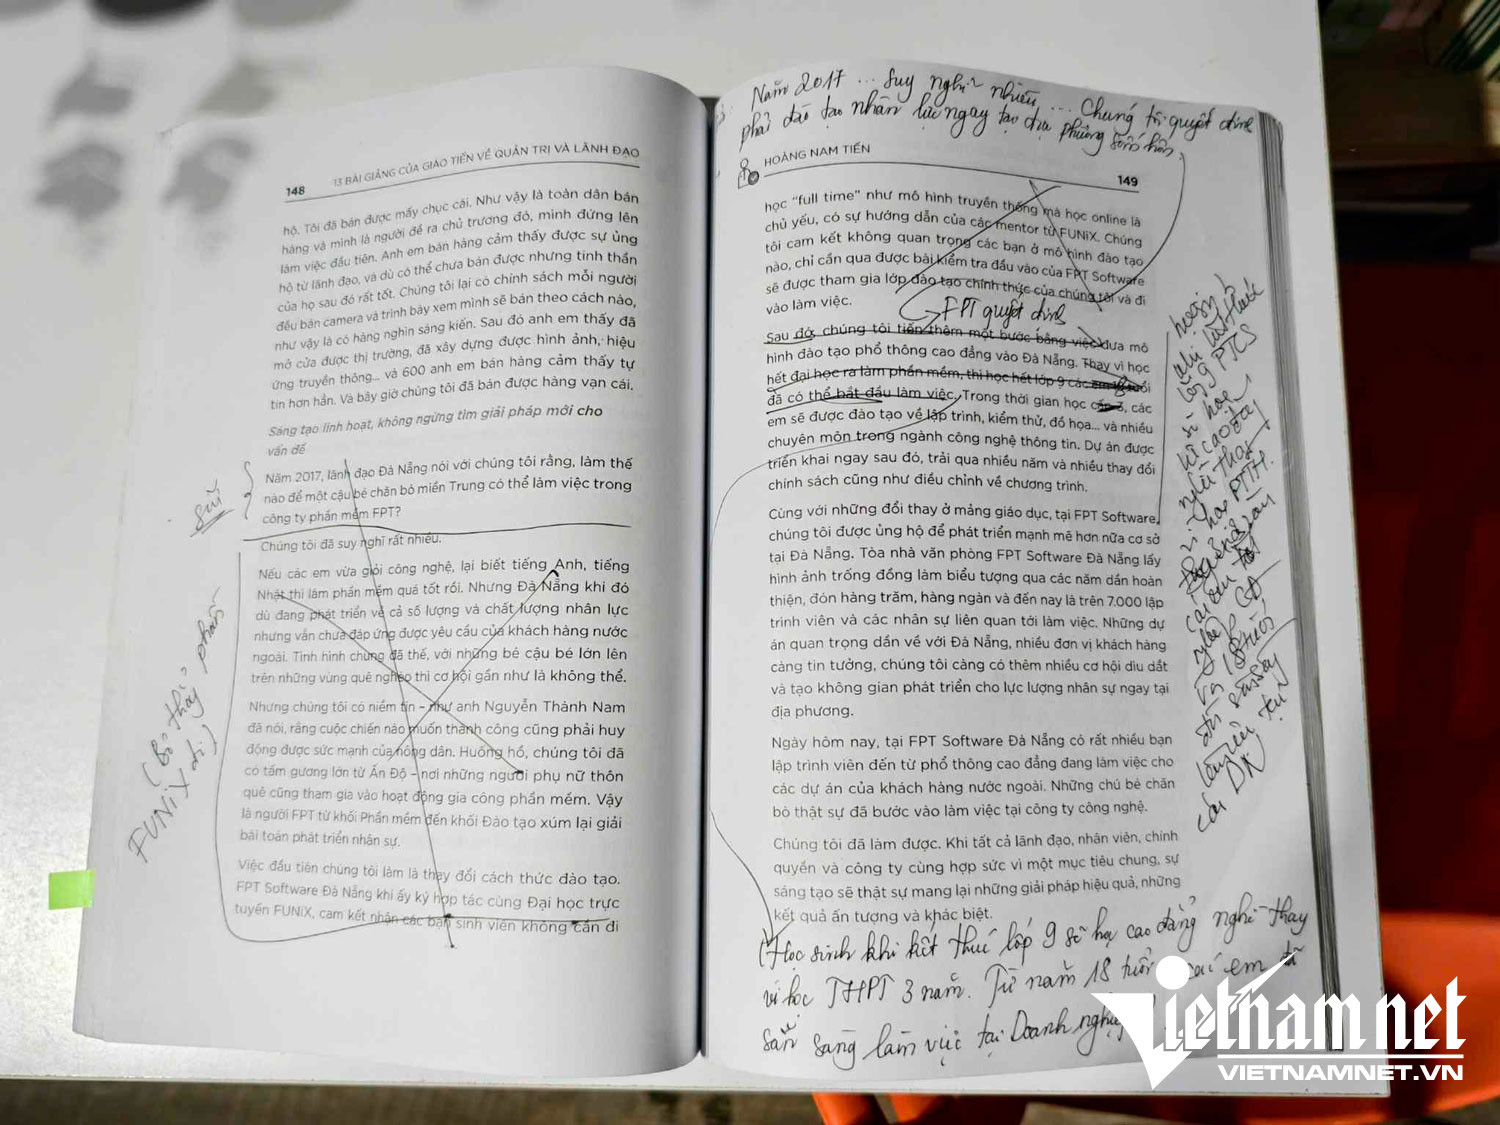 148
13 BÀI GIẢNG CỦA GIÁO TIẾN VỀ QUẢN TRỊ VÀ LÃNH ĐẠO
hộ. Tôi đã bán được mấy chục cái. Như vậy là toàn dân bán
hàng và mình là người đề ra chủ trương đó, mình đứng lên
làm việc đầu tiên. Anh em bán hàng cảm thấy được sự ủng
hộ từ lãnh đạo, và dù có thể chưa bán được nhưng tinh thần
của họ sau đó rất tốt. Chúng tôi lại có chính sách mỗi người
đều bán camera và trình bày xem mình sẽ bán theo cách nào,
như vậy là có hàng nghìn sáng kiến. Sau đó anh em thấy đã
mở cửa được thị trường, đã xây dựng được hình ảnh, hiệu
ứng truyền thông... và 600 anh em bán hàng cảm thấy tự
tin hơn hẳn. Và bây giờ chúng tôi đã bán được hàng vạn cái.
Sáng tạo linh hoạt, không ngừng tìm giải pháp mới cho
vấn đề
Năm 2017, lãnh đạo Đà Nẵng nói với chúng tôi rằng, làm thế
nào để một cậu bé chăn bò miền Trung có thể làm việc trong
công ty phần mềm FPT?
Chúng tôi đã suy nghĩ rất nhiều.
Nếu các em vừa giỏi công nghệ, lại biết tiếng Anh, tiếng
Nhật thì làm phần mềm quá tốt rồi. Nhưng Đà Nẵng khi đó
dù đang phát triển về cả số lượng và chất lượng nhân lực
nhưng vẫn chưa đáp ứng được yêu cầu của khách hàng nước
ngoài. Tình hình chung đã thế, với những bé cậu bé lớn lên
trên những vùng quê nghèo thì cơ hội gần như là không thể.
Nhưng chúng tôi có niềm tin – như anh Nguyễn Thành Nam
đã nói, rằng cuộc chiến nào muốn thành công cũng phải huy
động được sức mạnh của nông dân. Huống hồ, chúng tôi đã
có tấm gương lớn từ Ấn Độ – nơi những người phụ nữ thôn
quê cũng tham gia vào hoạt động gia công phần mềm. Vậy
là người FPT từ khối Phần mềm đến khối Đào tạo xúm lại giải
bài toán phát triển nhân sự.
Việc đầu tiên chúng tôi làm là thay đổi cách thức đào tạo.
FPT Software Đà Nẵng khi ấy ký hợp tác cùng Đại học trực
tuyến FUNiX, cam kết nhận các bạn sinh viên không cần đi
sửi
(Bỏ thầy phần
FUNiX đi)
Năm 2017 ... suy nghĩ nhiều ... Chúng tôi quyết định
phải đào tạo nhân lực ngay tại địa phương sớm hơn,
HOÀNG NAM TIẾN
149
học “full time” như mô hình truyền thống mà học online là
chủ yếu, có sự hướng dẫn của các mentor từ FUNiX. Chúng
tôi cam kết không quan trọng các bạn ở mô hình đào tạo
nào, chỉ cần qua được bài kiểm tra đầu vào của FPT Software
sẽ được tham gia lớp đào tạo chính thức của chúng tôi và đi
vào làm việc.
FPT quyết định
Sau đó, chúng tôi tiến thêm một bước bằng việc đưa mô
hình đào tạo phổ thông cao đẳng vào Đà Nẵng. Thay vì học
hết đại học ra làm phần mềm, thì học hết lớp 9 các em tuổi
đã có thể bắt đầu làm việc. Trong thời gian học cấp 3, các
em sẽ được đào tạo về lập trình, kiểm thử, đồ họa... và nhiều
chuyên môn trong ngành công nghệ thông tin. Dự án được
triển khai ngay sau đó, trải qua nhiều năm và nhiều thay đổi
chính sách cũng như điều chỉnh về chương trình.
Cùng với những đổi thay ở mảng giáo dục, tại FPT Software,
chúng tôi được ủng hộ để phát triển mạnh mẽ hơn nữa cơ sở
tại Đà Nẵng. Tòa nhà văn phòng FPT Software Đà Nẵng lấy
hình ảnh trống đồng làm biểu tượng qua các năm dần hoàn
thiện, đón hàng trăm, hàng ngàn và đến nay là trên 7.000 lập
trình viên và các nhân sự liên quan tới làm việc. Những dự
án quan trọng dần về với Đà Nẵng, nhiều đơn vị khách hàng
càng tin tưởng, chúng tôi càng có thêm nhiều cơ hội dìu dắt
và tạo không gian phát triển cho lực lượng nhân sự ngay tại
địa phương.
Ngày hôm nay, tại FPT Software Đà Nẵng có rất nhiều bạn
lập trình viên đến từ phổ thông cao đẳng đang làm việc cho
các dự án của khách hàng nước ngoài. Những chú bé chăn
bò thật sự đã bước vào làm việc tại công ty công nghệ.
Chúng tôi đã làm được. Khi tất cả lãnh đạo, nhân viên, chính
quyền và công ty cùng hợp sức vì một mục tiêu chung, sự
sáng tạo sẽ thật sự mang lại những giải pháp hiệu quả, những
kết quả ấn tượng và khác biệt.
(Học sinh khi kết thúc lớp 9 sẽ học cao đẳng nghề thay
vì học THPT 3 năm. Từ năm 18 tuổi, các em đã
sẵn sàng làm việc tại Doanh nghiệp
khi kết thúc
lớp 9 PTCS
sẽ học
cao đẳng
nghề thay
vì học PTTH.
18 tuổi
sẵn sàng
làm việc tại
các DN
Vietnamnet
VIETNAMNET.VN